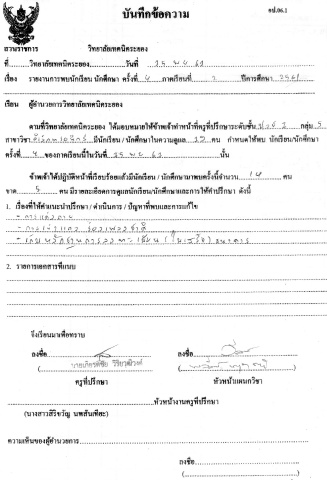 อป.06.1
บันทึกข้อความ
ส่วนราชการ วิทยาลัยเทคนิคระยอง
ที่ วิทยาลัยเทคนิคระยอง วันที่ 25 พ.ย. 61
เรื่อง รายงานการพบนักเรียน นักศึกษา ครั้งที่ 4 ภาคเรียนที่ 2 ปีการศึกษา 2561
เรียน ผู้อำนวยการวิทยาลัยเทคนิคระยอง
ตามที่วิทยาลัยเทคนิคระยอง ได้มอบหมายให้ข้าพเจ้าทำหน้าที่ครูที่ปรึกษาระดับชั้น กลุ่ม 5
สาขาวิชา มีนักเรียน/นักศึกษาในความดูแล คน กำหนดให้พบ นักเรียน/นักศึกษา
ครั้งที่ 4 ของภาคเรียนนี้ในวันที่ 25 พ.ย. 61 นั้น
ข้าพเจ้าได้ปฏิบัติหน้าที่เรียบร้อยแล้วมีนักเรียน / นักศึกษามาพบครั้งนี้จำนวน 14 คน
ขาด 5 คน มีรายละเอียดการดูแลนักเรียน/นักศึกษาและการให้คำปรึกษา ดังนี้
1. เรื่องที่ให้คำแนะนำปรึกษา / ดำเนินการ / ปัญหาที่พบและการแก้ไข
- การแต่งกาย
- การเข้าแถว ร้องเพลงชาติ
2. รายการเอกสารที่แนบ
จึงเรียนมาเพื่อทราบ
ลงชื่อ ลงชื่อ
ครูที่ปรึกษา หัวหน้าแผนกวิชา
หัวหน้างานครูที่ปรึกษา
(นางสาวสิริขวัญ นพสันเทียะ)
ความเห็นของผู้อำนวยการ
ลงชื่อ